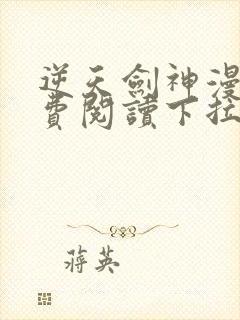 逆天劍神漫
費閱讀下拉
蔣英